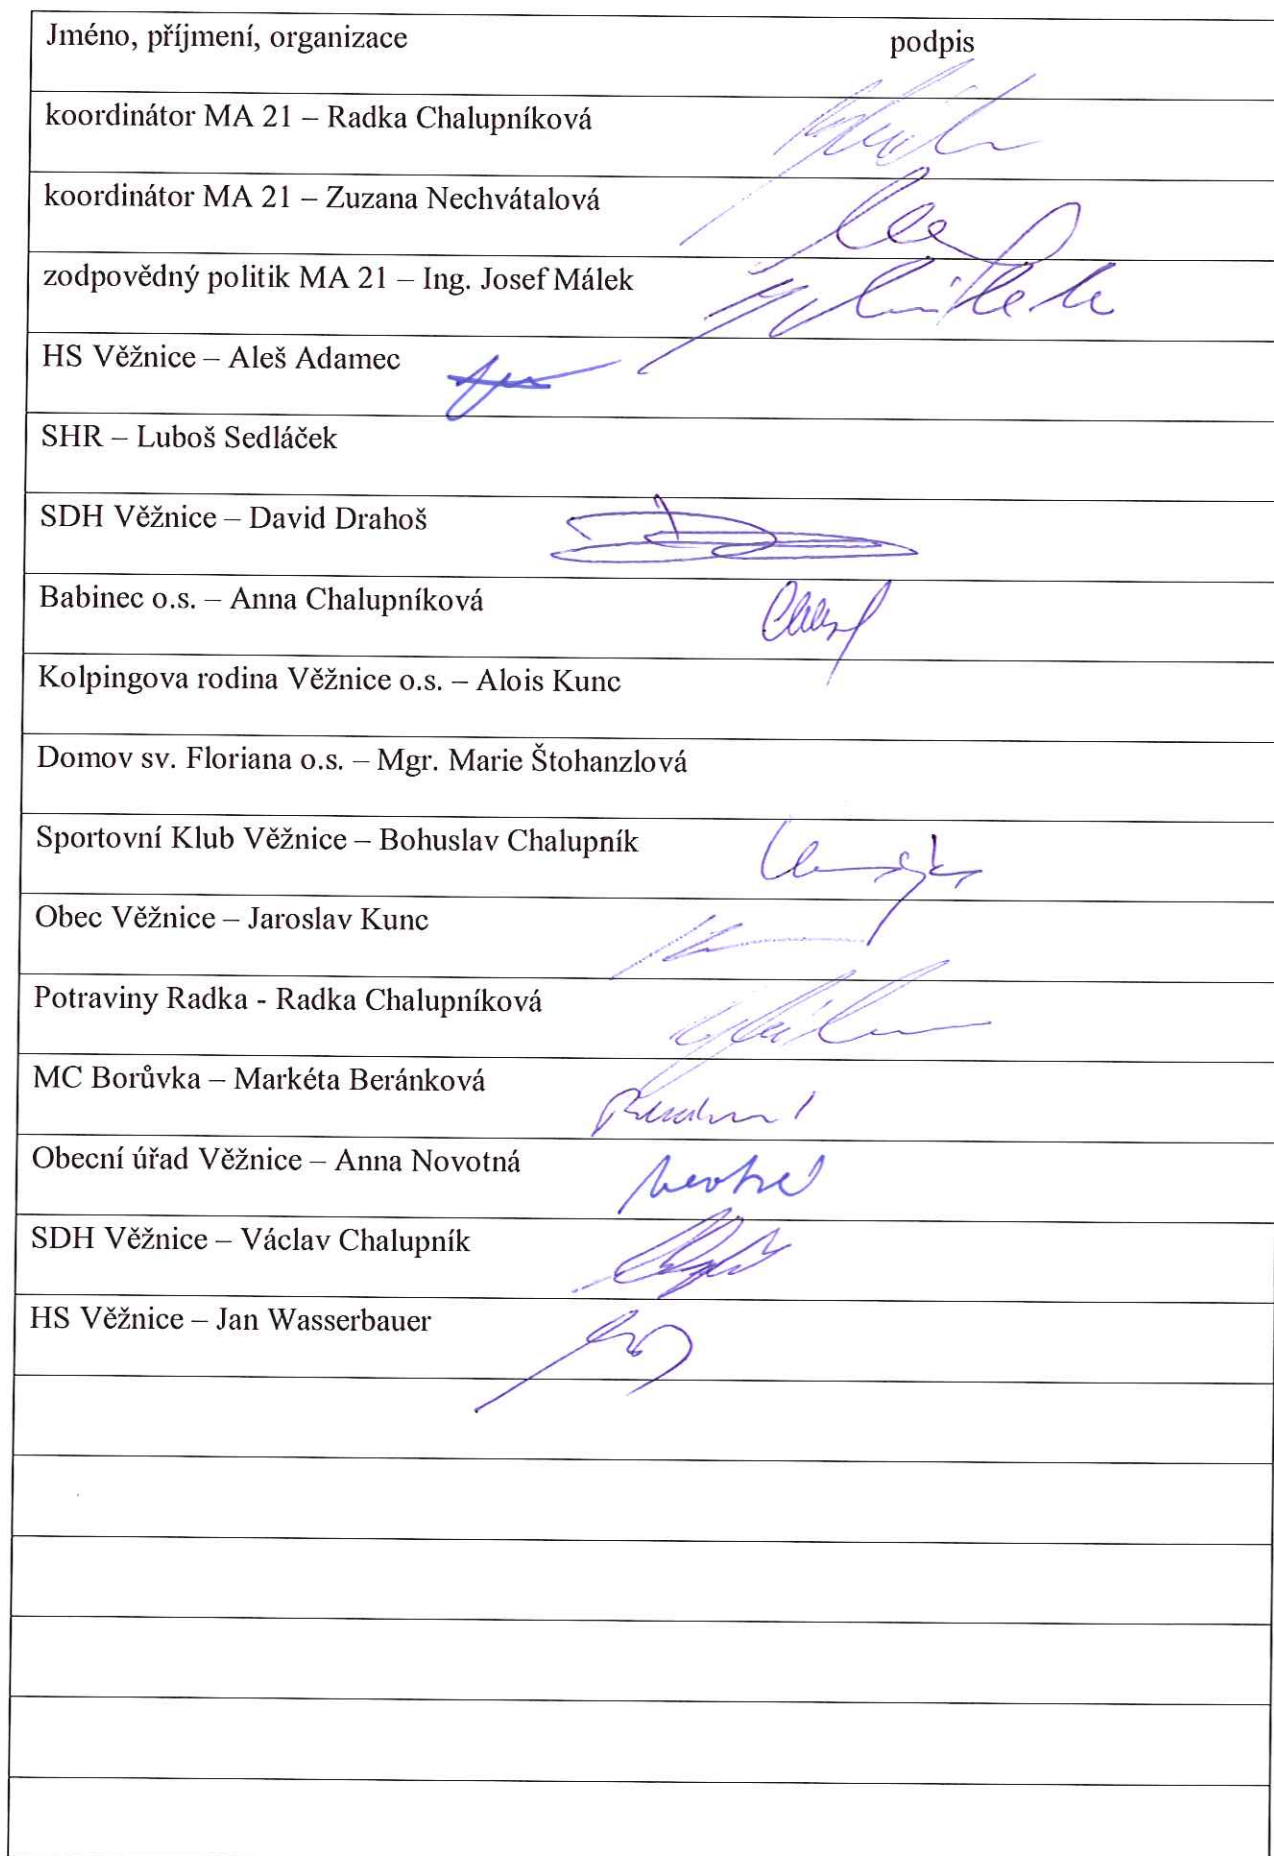 Jméno, příjmení, organizace podpis
koordinátor MA 21 – Radka Chalupníková
koordinátor MA 21 – Zuzana Nechvátalová
zodpovědný politik MA 21 – Ing. Josef Málek
HS Věžnice – Aleš Adamec
SHR – Luboš Sedláček
SDH Věžnice – David Drahoš
Babinec o.s. – Anna Chalupníková
Kolpingova rodina Věžnice o.s. – Alois Kunc
Domov sv. Floriana o.s. – Mgr. Marie Štohanzlová
Sportovní Klub Věžnice – Bohuslav Chalupník
Obec Věžnice – Jaroslav Kunc
Potraviny Radka - Radka Chalupníková
MC Borůvka – Markéta Beránková
Obecní úřad Věžnice – Anna Novotná
SDH Věžnice – Václav Chalupník
HS Věžnice – Jan Wasserbauer